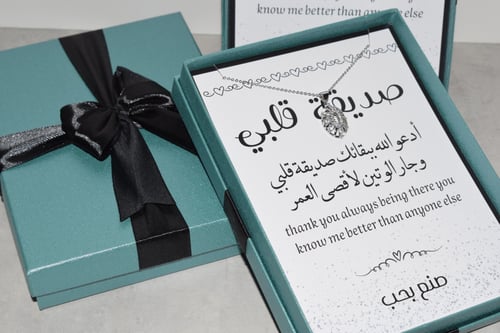 know me better than anyone else
صديقة قلبي
أدعو الله ببقائك صديقة قلبي
وجار الوتين لأقصى العمر
thank you always being there you
know me better than anyone else
صنع بحب